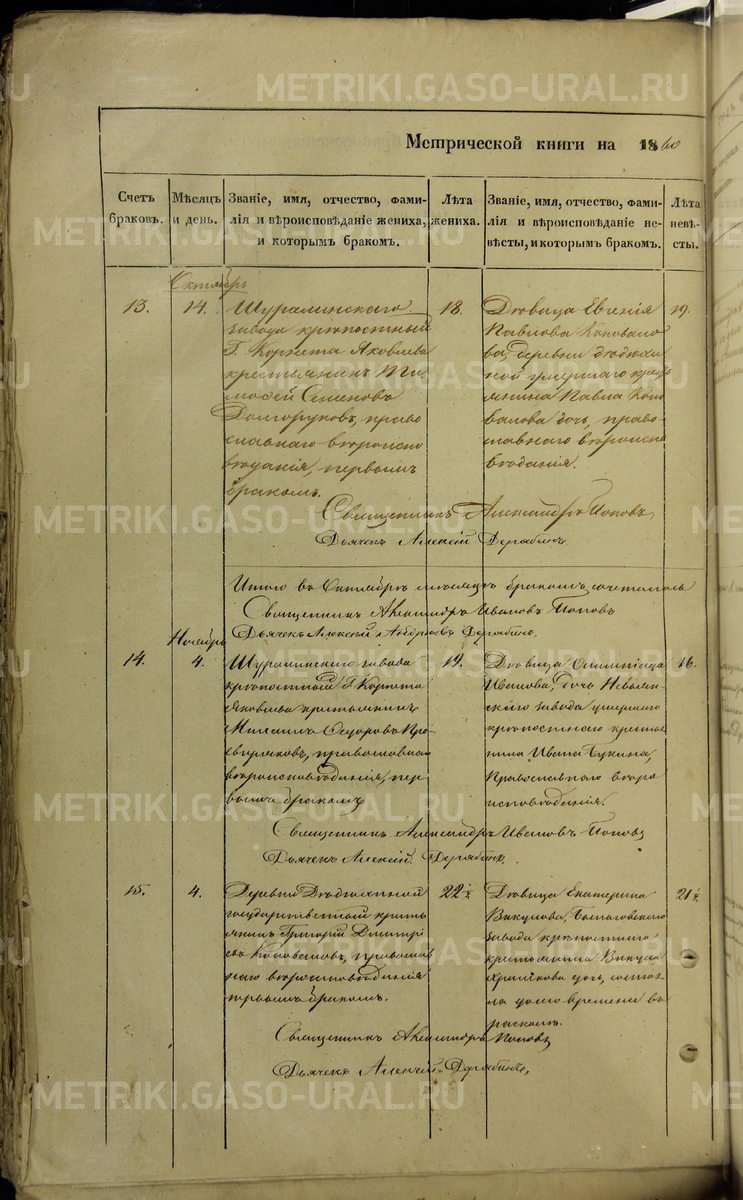 METRIKI.GASO-URAL.RU
Метрической книги на 1860
Счетъ браковъ.
Мѣсяцъ и день.
Званіе, имя, отчество, фами-
лія и вѣроисповѣданіе жениха,
и которымъ бракомъ.
Лѣта жениха.
Званіе, имя, отчество, фами-
лія и вѣроисповѣданіе не-
вѣсты, и которымъ бракомъ.
Лѣта невѣ-
сты.
Октябрь
13.
14.
Шуралинскаго
завода крѣпостный
Г. Корнета Яковлева
крестьянинъ
Семеновъ
Долгоруковъ, право
славнаго вѣроиспо
вѣданія, первымъ
бракомъ.
18.
Дѣвица Евгенія
Павлова Коновало
ва, деревни
умершаго кресть
янина Павла Коно
валова дочь, право
славнаго вѣроиспо
вѣданія.
19.
Священникъ Александръ Поповъ
Дьячекъ Алексій Дерябинъ.
Итого въ Октябрѣ мѣсяцѣ бракомъ сочеталось
Священникъ Александръ Ивановъ Поповъ
Дьячекъ Алексій Андреевъ Дерябинъ.
Ноябрь
14.
4.
Шуралинскаго завода
крѣпостный Г. Корнета
Яковлева крестьянинъ
Михаилъ Ѳедоровъ
православнаго
вѣроисповѣданія, пер
вымъ бракомъ
19.
Дѣвица Олимпіада
Иванова, дочь Невьян
скаго завода умершаго
крѣпостнаго кресть
нина Ивана Букина,
Православнаго вѣро
исповѣданія.
16.
Священникъ Александръ Ивановъ Поповъ
Дьячекъ Алексій Дерябинъ.
15.
4.
Деревни
государственный кресть
янинъ Григорій Дмитрі
евъ Коноваловъ, православ
наго вѣроисповѣданія
первымъ бракомъ.
22 ½
Дѣвица Екатерина
Викулова,
завода крѣпостнаго
крестьянина Викула
дочь, состоя
ла до сего времени въ
расколѣ.
21 ½
Священникъ Александръ Поповъ
Дьячекъ Алексій Дерябинъ.